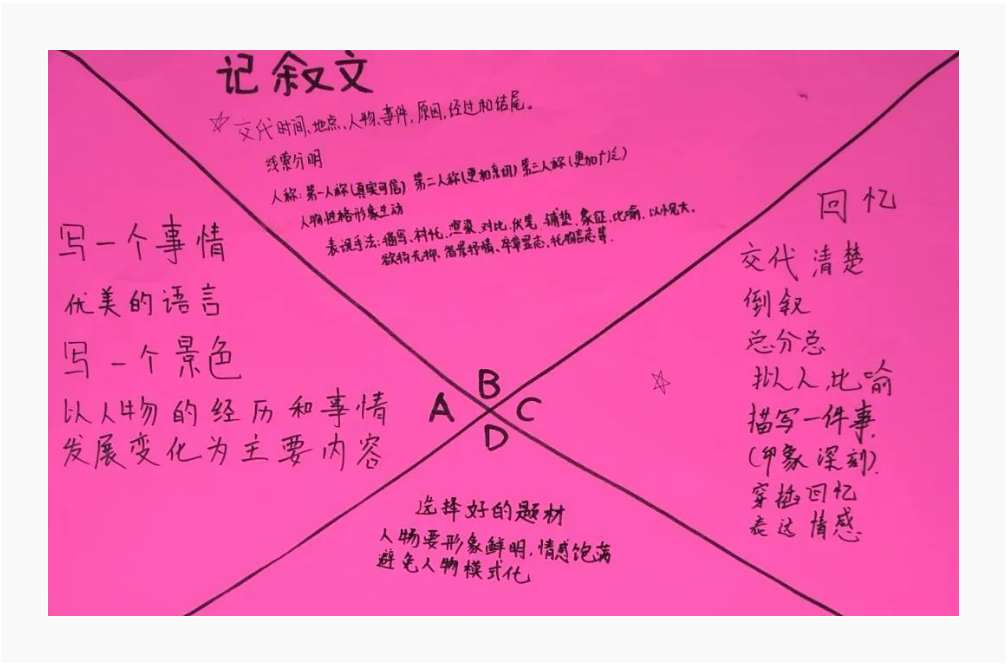 记叙文
交代时间、地点、人物、事件，原因，经过和结尾。
线索分明
人称：第一人称(真实可信) 第二人称(更加亲切) 第三人称(更加广泛)
人物性格形象生动
表现手法：描写、衬托、渲染、对比、伏笔、铺垫、象征、比喻、以小见大、
欲扬先抑、借景抒情、卒章显志、托物言志等.
写一个事情
优美的语言
写一个景色
以人物的经历和事情
发展变化为主要内容
A
B
C
D
回忆
交代清楚
倒叙
总分总
拟人,比喻
描写一件事
(印象深刻).
穿插回忆
表达情感
选择好的题材
人物要形象鲜明,情感饱满
避免人物模式化